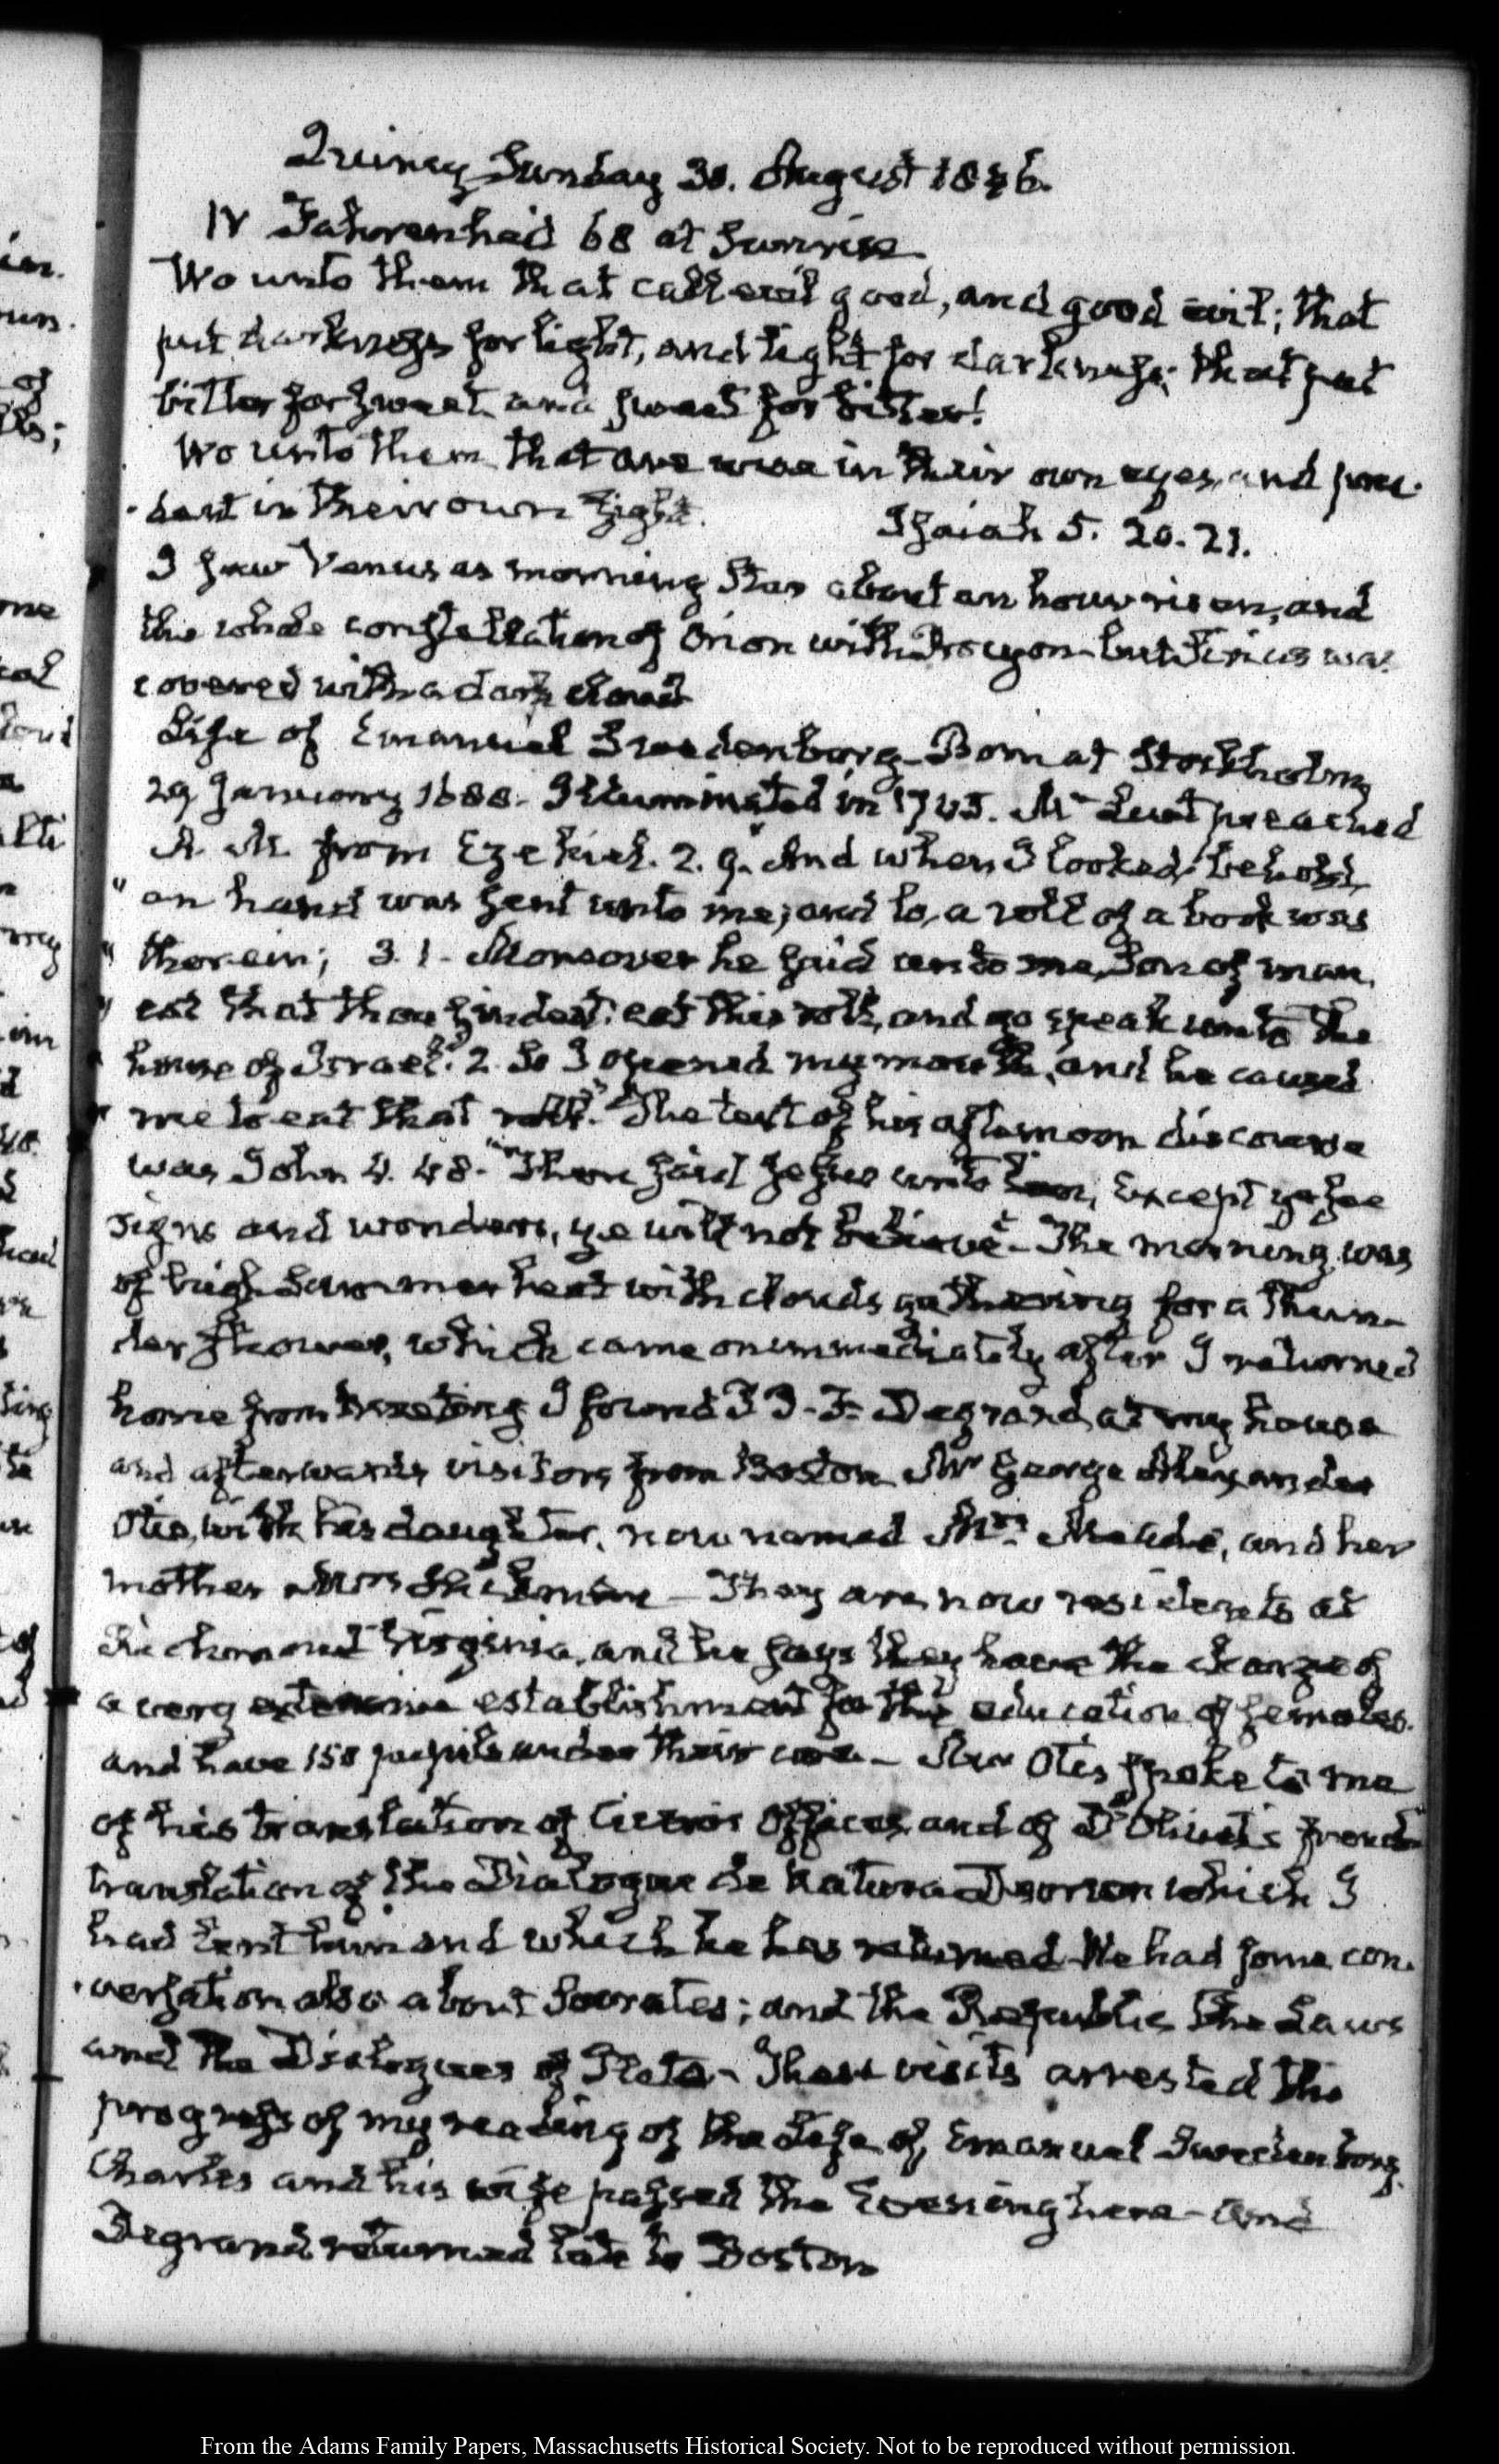 Quincy Sunday 30. August 1846.
IV Fahrenheid 68 at Sunrise
Wo unto them that call evil good, and good evil; that
put darkness for light, and light for darkness; that put
bitter for sweet and sweet for bitter!
Wo unto them that are wise in their own eyes, and pru-
-dent in their own sight. Isaiah 5. 20. 21.
I saw Venus as morning Star about an hour risen, and
the whole constellation of Orion with Procyon but Sirius was
covered with a dark cloud
Life of Emanuel Swedenborg. Born at Stockholm
29 January 1688. Illuminated in 1745. Mr Lunt preached
A. M. from Ezekiel. 2. 9. "And when I looked, behold,
" an hand was sent unto me; and lo, a roll of a book was
" therein; 3. 1. Moreover he said unto me, Son of man,
" eat that thou findest; eat this roll, and go speak unto the
" house of Israel." 2. So I opened my mouth, and he caused
" me to eat that roll." The text of his afternoon discourse
was John 4. 48. "Then said Jesus unto him, Except ye see
signs and wonders, ye will not believe" The morning was
of high Summer heat with clouds gathering for a thun-
der shower, which came on immediately after I returned
home from meeting I found P. P. F. Degrand at my house
and afterwards visitors from Boston Mr George Alexander
Otis, with his daughter, now named Mrs and her
mother Mrs — They are now residents at
Richmond Virginia, and he says they have the charge of
a very extensive establishment for the education of females.
and have 150 pupils under their care — Mr Otis spoke to me
of his translation of Cicero's Offices, and of D'Olivet's french
translation of the Dialogue de Natura Deorum which I
had lent him and which he has returned We had some con-
-versation also about Socrates; and the Republic, the Laws
and the Dialogues of Plato — These visits arrested the
progress of my reading of the Life of Emanuel Swedenborg.
Charles and his wife passed the Evening here — and
Degrand returned late to Boston
From the Adams Family Papers, Massachusetts Historical Society. Not to be reproduced without permission.